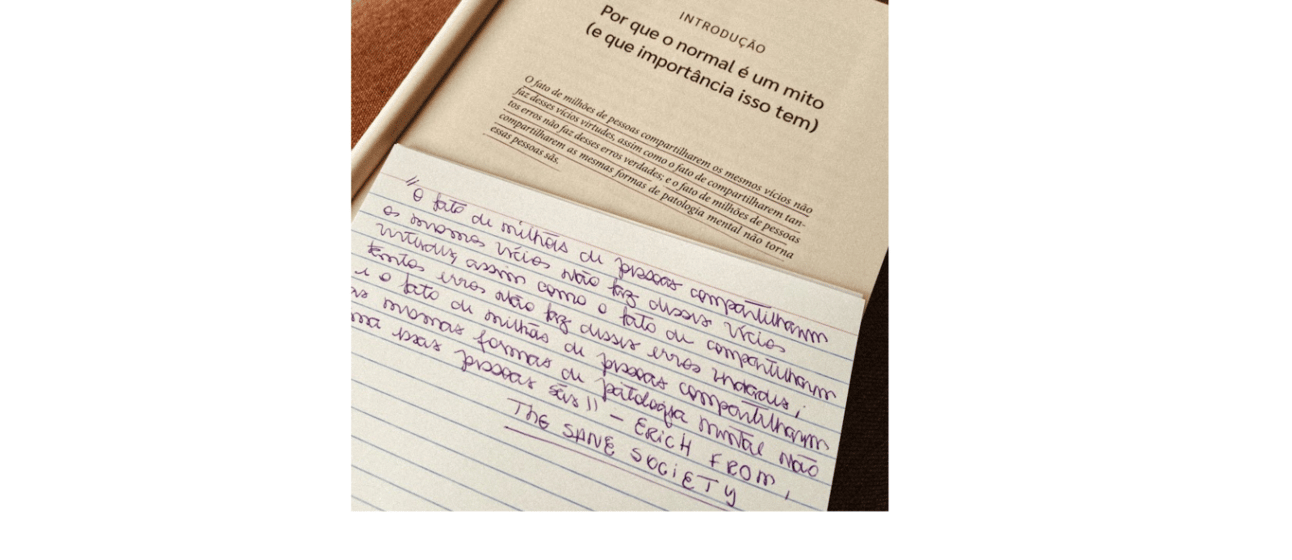 INTRODUÇÃO
Por que o normal é um mito
(e que importância isso tem)
O fato de milhões de pessoas compartilharem os mesmos vícios não
faz desses vícios virtudes, assim como o fato de compartilharem tan-
tos erros não faz desses erros verdades; e o fato de milhões de pessoas
compartilharem as mesmas formas de patologia mental não torna
essas pessoas sãs.
"O fato de milhões de pessoas compartilharem
os mesmos vícios não faz desses vícios
virtudes, assim como o fato de compartilharem
tantos erros não faz desses erros verdades;
e o fato de milhões de pessoas compartilharem
as mesmas formas de patologia mental não
na essas pessoas sãs" - ERICH FROM,
THE SANE SOCIETY